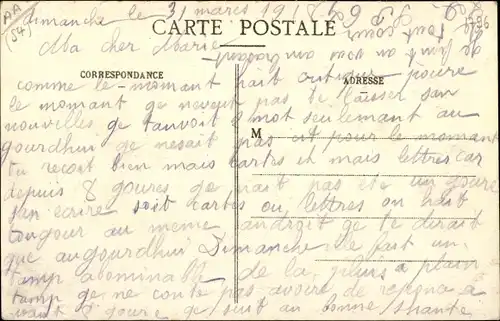 AA
(54)
1796
Dimanche le 31 mars 1918
CARTE POSTALE
Ma cher Marie
CORRESPONDANCE
ADRESSE
comme le momant hait
le momant ge neveut pas te laisser san
nouvelles ge tanvoit 1 mot seulemant au
M
gourdhui ge nesait pas sit pour le momant
tu recoit bien mais cartes et mais lettres car
depuis 8 goures ge nait pas été un goure
san ecrire soit cartes ou lettres on hait
tougour au meme androit ge te dirait
que augourdhui Dimanche ile fait un
tamp abominable de la pluis a plain
tamp ge ne conte pas avoire de reponce a
vant goure ge suit an bonne shanté